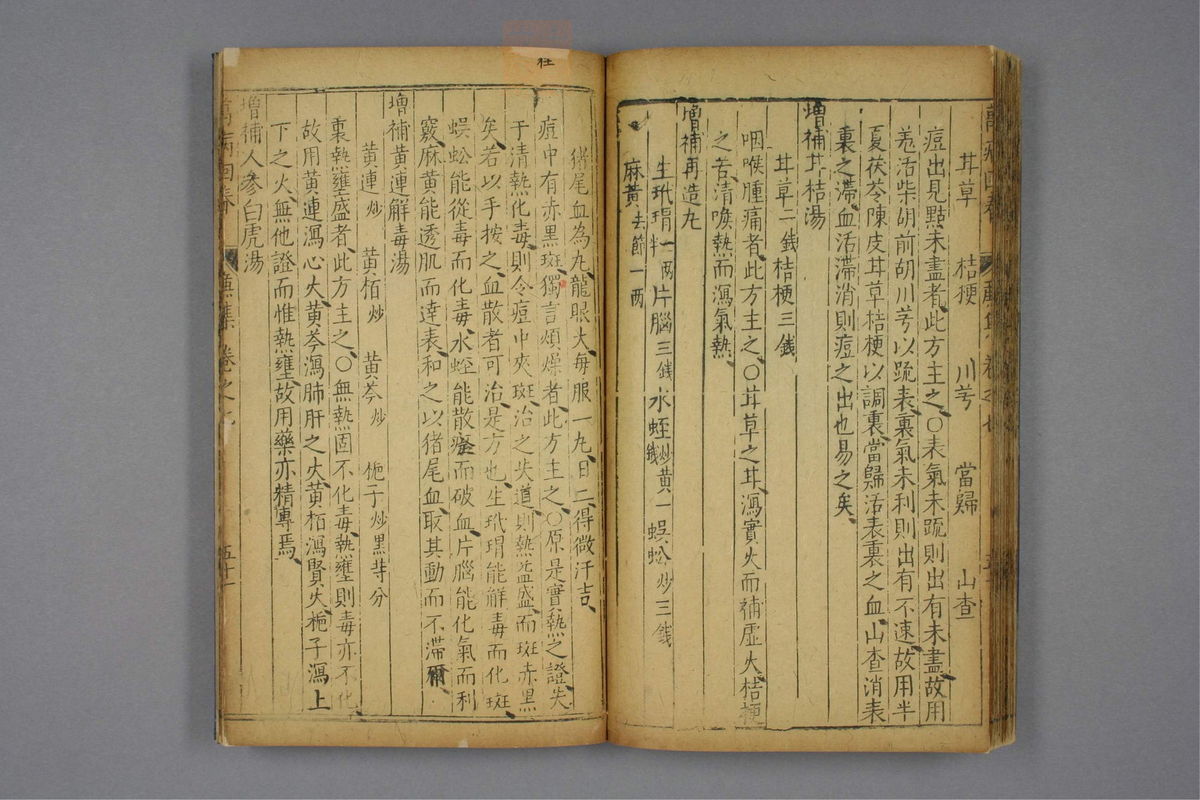 甘草 桔梗 川芎 當歸 山查
痘出見點未盡者此方主之○表氣未䟽則出有未盡故用
羗活柴胡前胡川芎以䟽表裏氣未利則出有不速故用半
夏茯苓陳皮甘草桔梗以調裏當歸活表裏之血山查消表
裏之滯血活滯消則痘之出也易之矣
增補甘桔湯
甘草二錢桔梗三錢
咽喉腫痛者此方主之○甘草之甘瀉實火而補虛火桔梗
之苦清喉熱而瀉氣熱
增補再造丸
生玳瑁一兩半片腦三錢水蛭炒黃一錢蜈蚣炒三錢
麻黃去節一兩
猪尾血為丸龍眼大每服一丸日二得微汗吉
痘中有赤黑斑獨言煩燥者此方主之○原是實熱之證失
于清熱化毒則令痘中夾斑治之失道則熱益盛而斑赤黑
矣若以手按之血散者可治是方也生玳瑁能解毒而化斑
蜈蚣能從毒而化毒水蛭能散瘀而破血片腦能化氣而利
竅麻黃能透肌而達表和之以猪尾血取其動而不滯爾
增補黃連解毒湯
黃連炒 黃栢炒 黃芩炒 梔子炒黑等分
裏熱壅盛者此方主之○無熱固不化毒熱壅則毒亦不化
故用黃連瀉心火黃芩瀉肺肝之火黃栢瀉賢火梔子瀉上
下之火無他證而惟熱壅故用藥亦精專焉
增補人參白虎湯
萬病回春 蕪集 卷之七 五十一